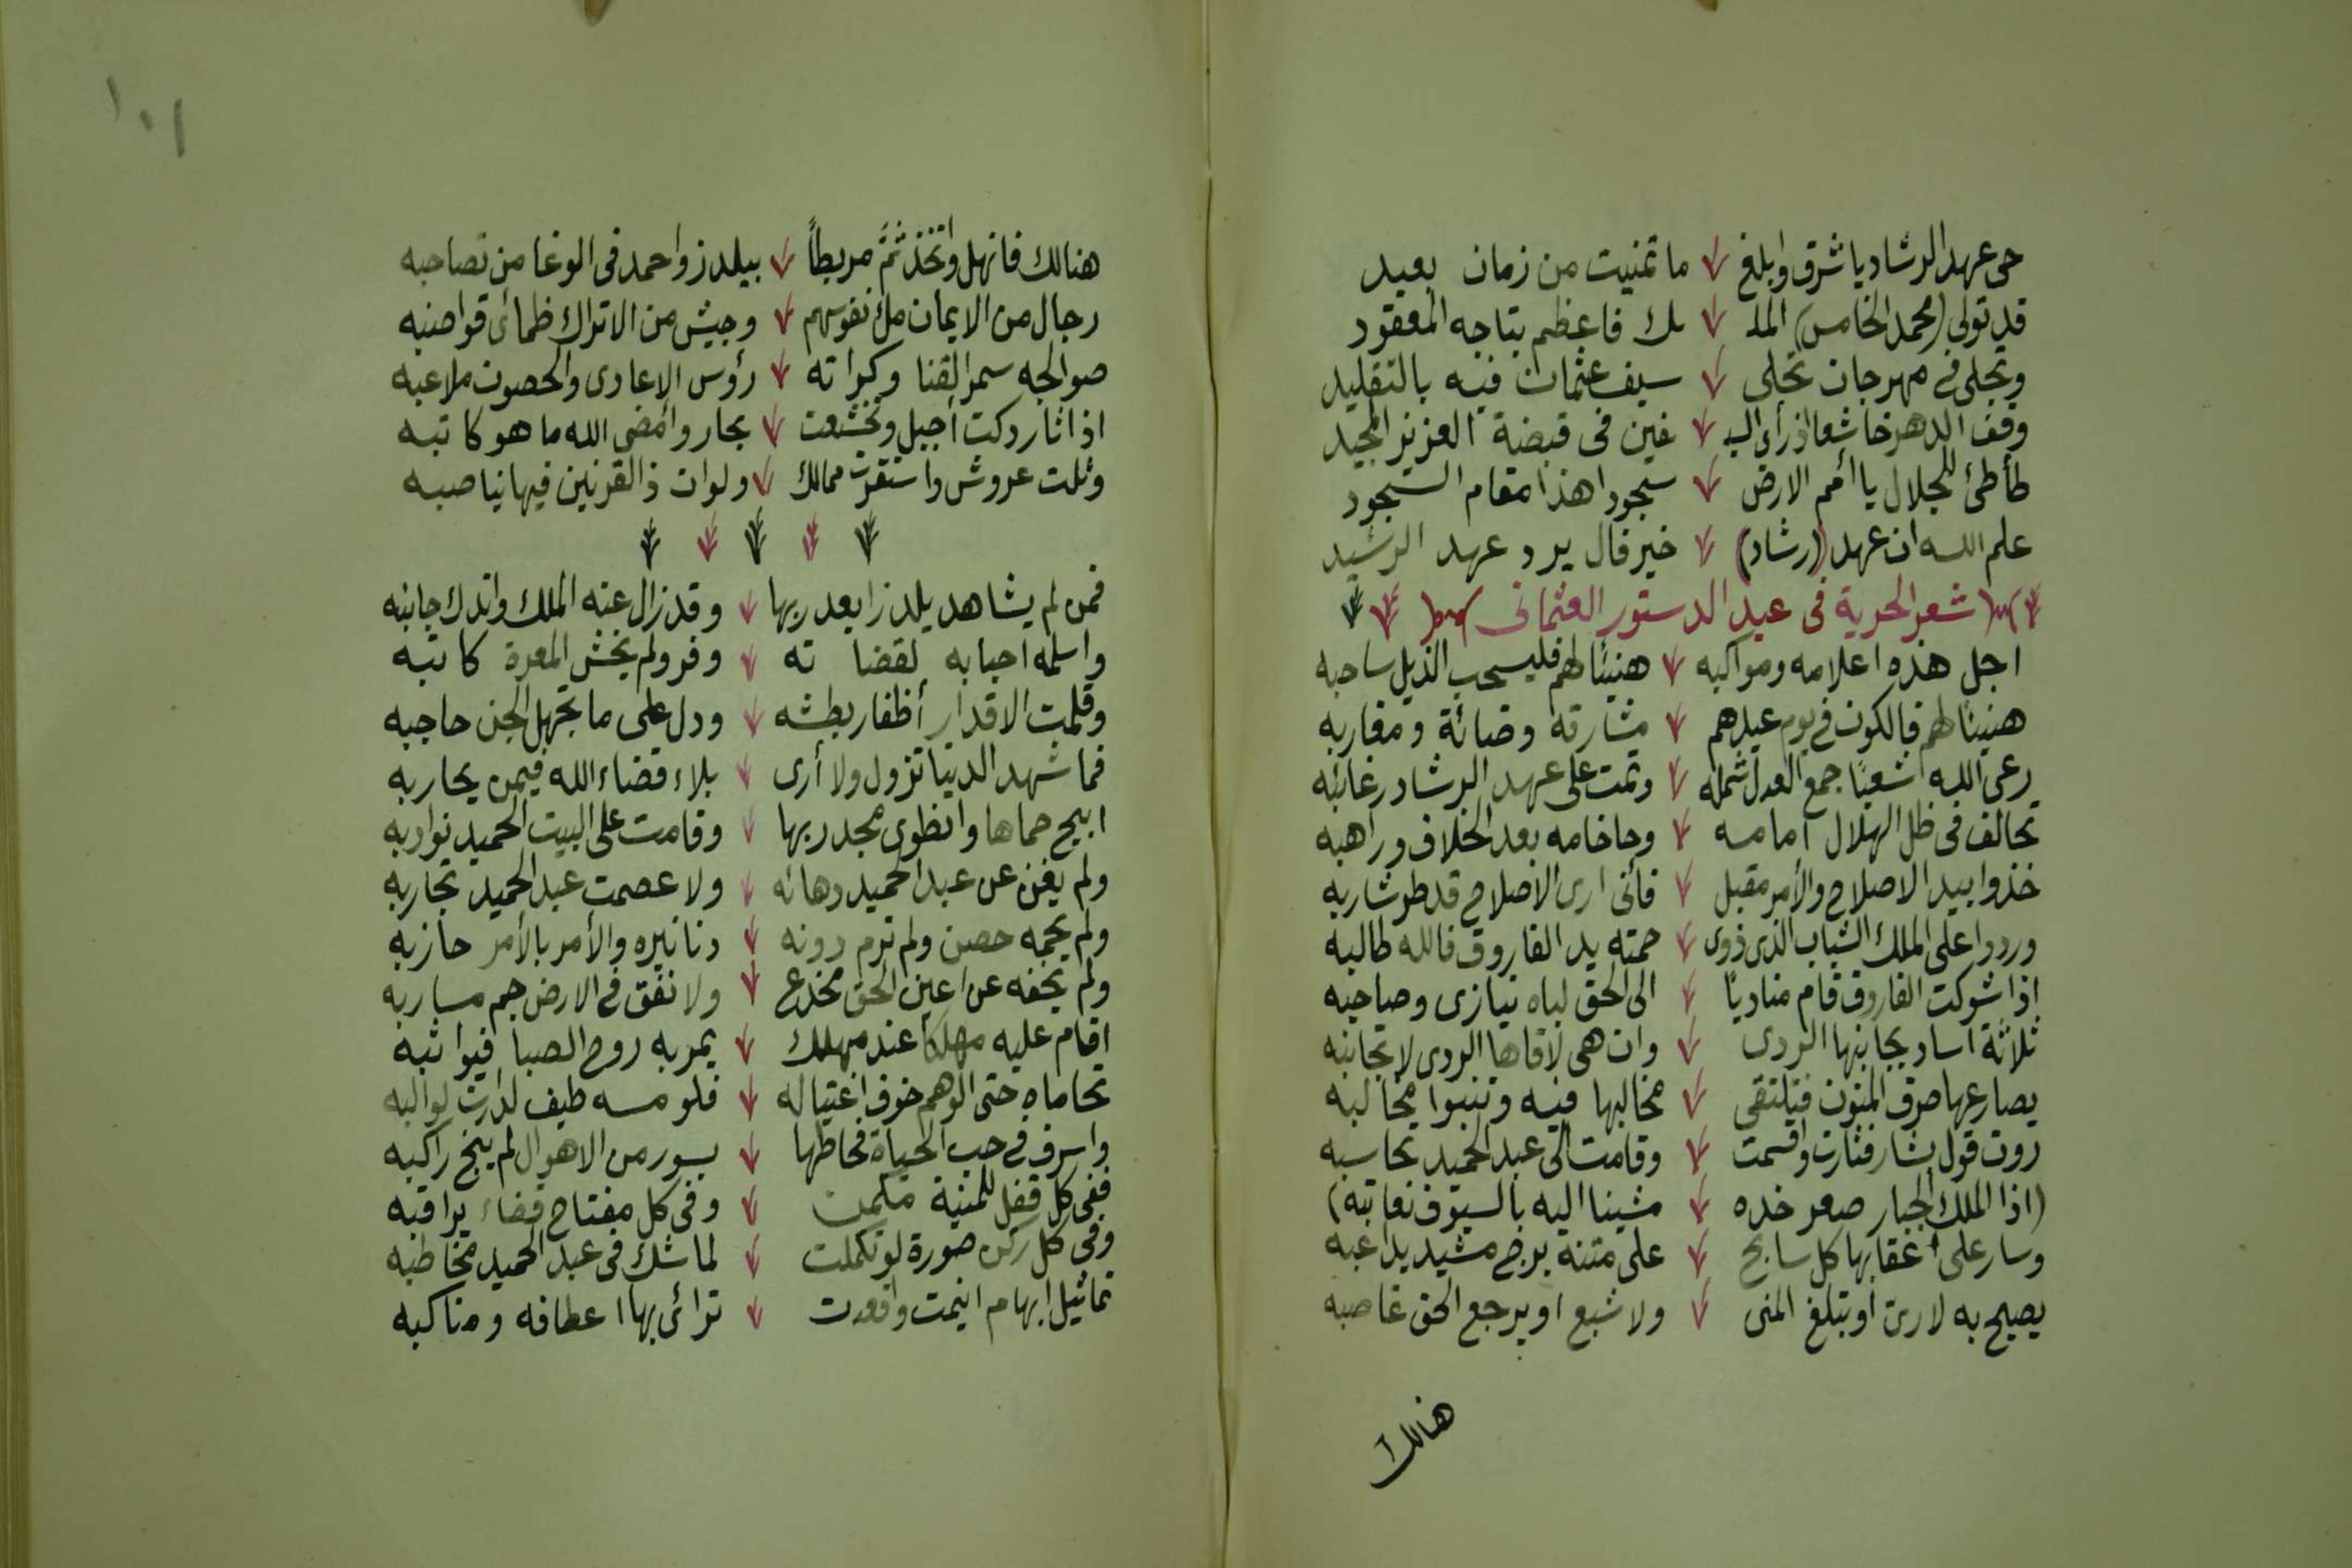 حى عهد الرشاد يا شرق وابلغ ما تمنيت من زمان بعيد
قد تولى (محمد الخامس) الملـ ـك فاعظم بتاجه المعقود
وتجلى فى مهرجان تجلى سيف عثمان فيه بالتقليد
وقف الدهر خاشعا اذ رأى السيـ ـفين فى قبضة العزيز المجيد
طأطئ للجلال يا أمم الارض سجودا هذا مقام السجود
علم الله ان عهد (رشاد) خير فال يرد عهد الرشيد
شعر الحرية فى عيد الدستور العثمانى
اجل هذه اعلامه ومواكبه هنيئا لهم فليسحب الذيل ساحبه
هنيئا لهم فالكون فى يوم عيدهم مشارقه وضائة ومغاربه
رعى الله شعبا جمع العدل شمله وتمت على عهد الرشاد رغائبه
تحالف فى ظل الهلال امامه وحاخامه بعد الخلاف وراهبه
خذوا بيد الاصلاح والأمر مقبل فأنى ارى الأصلاح قد طر شاربه
وردوا على الملك الشباب الذى ذوى حمته يد الفاروق فالله طالبه
اذا شوكت الفاروق قام مناديا الى الحق لباه نيازى وصاحبه
ثلاثة اساد يجانبها الردى وان هى لاقاها الردى لا تجانبه
يصارعها صرف المنون فتلتقى مخالبها فيه وتنبوا مخالبه
روت قول بشار فثارت واقسمت وقامت الى عبد الحميد تحاسبه
(اذا الملك الجبار صعر خده مشينا اليه بالسيوف نعاتبه)
وسار على أعقابها كل سابح على متنه برج مشيد يداعبه
يصيح به لا رى او تبلغ المنى ولا شبع او يرجع الحق غاصبه
هنالك
١٠١
هنالك فانهل واتخذ ثَمَّ مربطاً بيلدز واحمد فى الوغا من تصاحبه
رجال من الايمان ملئ نفوسهم وجيش من الاتراك ظمأى قواضبه
صوالجه سمر القنا وكراته رؤس الاعادى والحصون ملاعبه
اذا ثار دكت أجبل وتخشعت بحار وأمضى الله ما هو كاتبه
وثلت عروش واستقرت ممالك ولو ان ذا القرنين فيها يناصبه
فمن لم يشاهد يلدزا بعد ربها وقد زال عنه الملك واندك جانبه
واسلمه احبابه لقضا ئه وفر ولم يخش المعرة كاتبه
وقلمت الاقدار أظفار بطشه ودل على ما تجهل الجن حاجبه
فما شهد الدنيا تزول ولا أرى بلاء قضاء الله فيمن يحاربه
ابيح حماها وانطوى مجد ربها وقامت على البيت الحميد نوادبه
ولم يغن عن عبد الحميد دهائه ولا عصمت عبد الحميد تجاربه
ولم يحمه حصن ولم ترم دونه دنانيره والأمر بالأمر حازبه
ولم يخفه عن اعين الحق مخدع ولا نفق فى الارض جم مساربه
اقام عليه مهلكا عند مهلك يمر به روح الصبا فيواثبه
تحاماه حتى الوهم خوف اغتياله فلو مسه طيف لدارت لوالبه
واسرف فى حب الحياة فحاطها بسور من الاهوال لم ينج راكبه
ففى كل قفل للمنية مكمن وفى كل مفتاح قضاء يراقبه
وفى كل ركن صورة لو تكلمت لما شك فى عبد الحميد مخاطبه
تماثيل ابهام انيمت واقعدت ترائى بها اعطافه ومناكبه